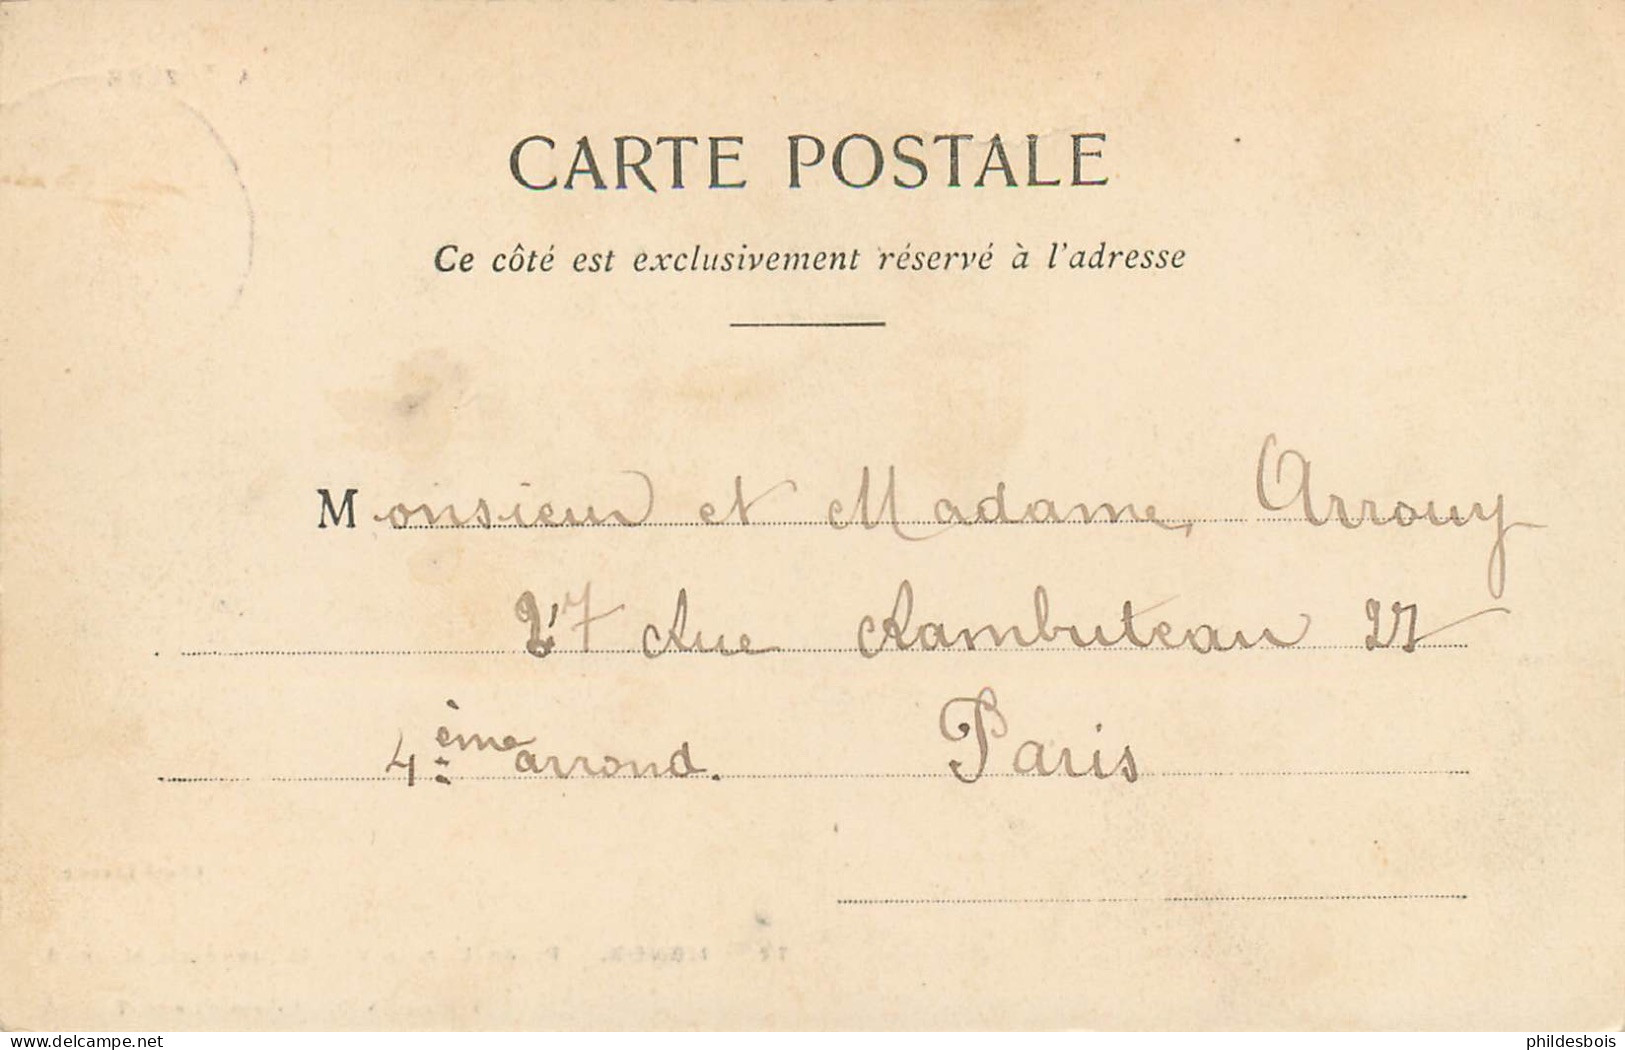 CARTE POSTALE
Ce côté est exclusivement réservé à l'adresse
Monsieur et Madame Arrouy
27 Rue Rambuteau 27
4ème arrond. Paris
www.delcampe.net
phildesbois